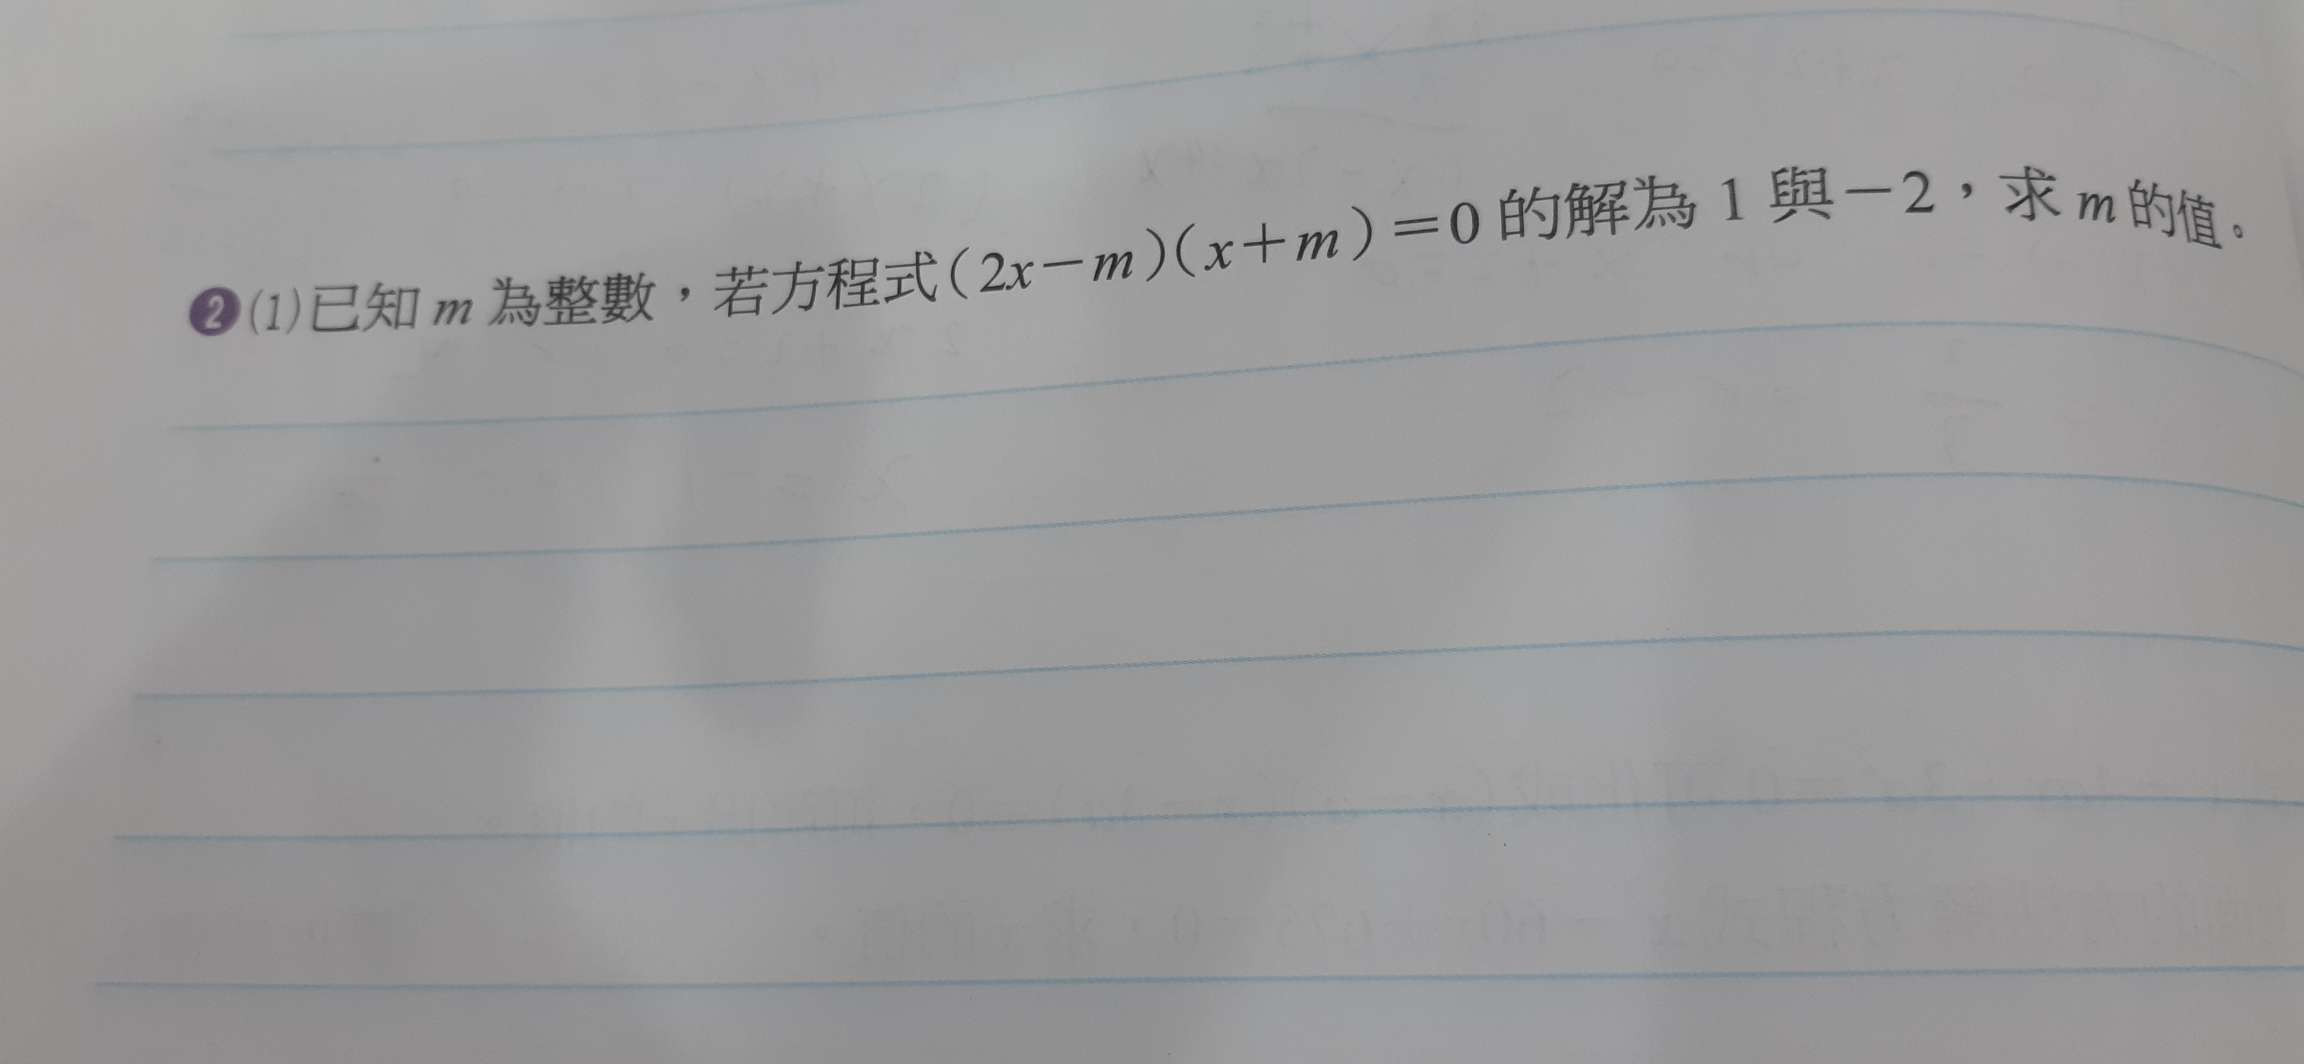 ❷(1)已知 m 為整數，若方程式(2x－m)(x＋m)＝0 的解為 1 與－2，求 m 的值。